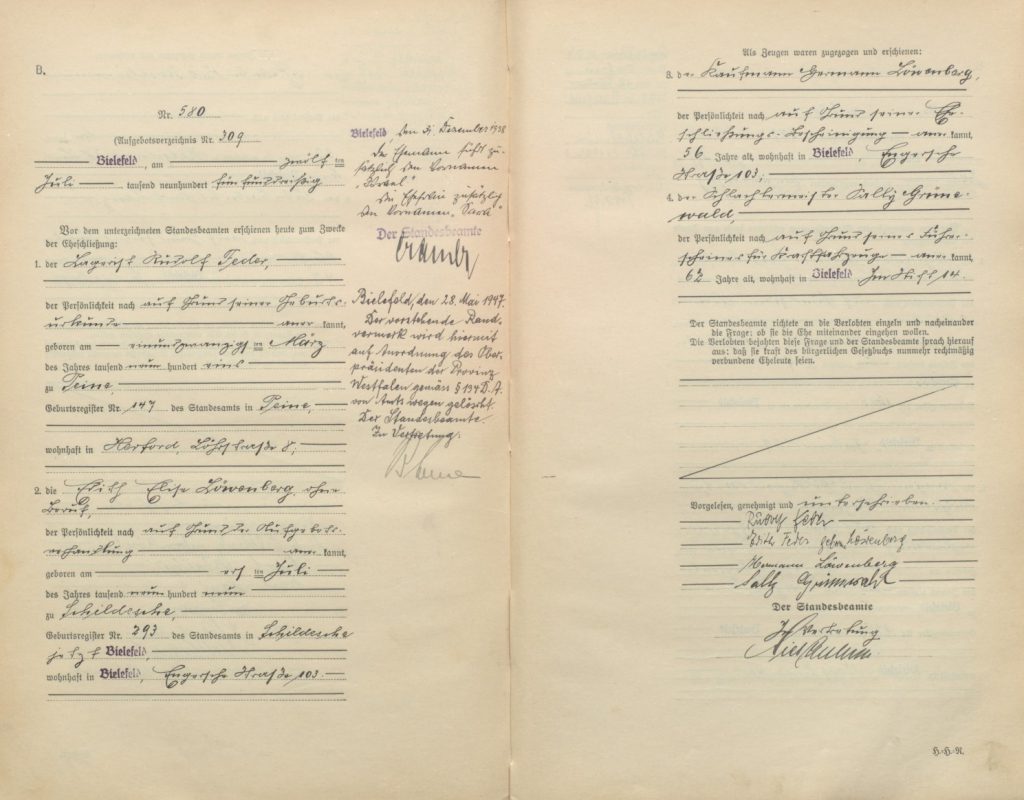 B.
Nr. 580
(Aufgebotsverzeichnis Nr. 309
Bielefeld, am zwölf ten
Juli tausend neunhundert fünfunddreißig
Vor dem unterzeichneten Standesbeamten erschienen heute zum Zwecke
der Eheschließung:
1. der Lagerist Rudolf Feder,
der Persönlichkeit nach auf Grund seiner Geburts-
urkunde aner kannt,
geboren am einundzwanzigsten März
des Jahres tausend neun hundert eins
zu Peine,
Geburtsregister Nr. 147 des Standesamts in Peine,
wohnhaft in Herford, Löhrstraße 8;
2. die Edith Elise Löwenberg, ohne
Beruf,
der Persönlichkeit nach auf Grund der Aufgebots-
verhandlung aner kannt,
geboren am ersten Juli
des Jahres tausend neun hundert neun
zu Schildesche,
Geburtsregister Nr. 293 des Standesamts in Schildesche
jetzt Bielefeld,
wohnhaft in Bielefeld, Engersche Straße 103.
Bielefeld, den 31. Dezember 1938
Der Ehemann führt zu-
sätzlich den Vornamen
"Israel"
Die Ehefrau zusätzlich
den Vornamen "Sara"
Der Standesbeamte
Bielefeld, den 28. Mai 1947.
Der vorstehende Rand-
vermerk wird hiermit
auf Anordnung des Ober-
präsidenten der Provinz
Westfalen gemäss § 134 D.A.
von Amts wegen gelöscht.
Der Standesbeamte.
In Vertretung:
Als Zeugen waren zugezogen und erschienen:
3. der Kaufmann Hermann Löwenberg,
der Persönlichkeit nach auf Grund seiner Eh-
schließungs-Bescheinigung aner kannt,
56 Jahre alt, wohnhaft in Bielefeld, Engersche
Straße 103;
4. der Schlachtermeister Sally Grüne-
wald,
der Persönlichkeit nach auf Grund seines Führer-
scheines für Kraftfahrzeuge aner kannt,
62 Jahre alt, wohnhaft in Bielefeld, Im Stift 14.
Der Standesbeamte richtete an die Verlobten einzeln und nacheinander
die Frage: ob sie die Ehe miteinander eingehen wollen.
Die Verlobten bejahten diese Frage und der Standesbeamte sprach hierauf
aus: daß sie kraft des bürgerlichen Gesetzbuchs nunmehr rechtmäßig
verbundene Eheleute seien.
Vorgelesen, genehmigt und unterschrieben.
Rudolf Feder
Edith Feder geb. Löwenberg
Hermann Löwenberg
Sally Grünewald
Der Standesbeamte
In Vertretung
H-H-R.